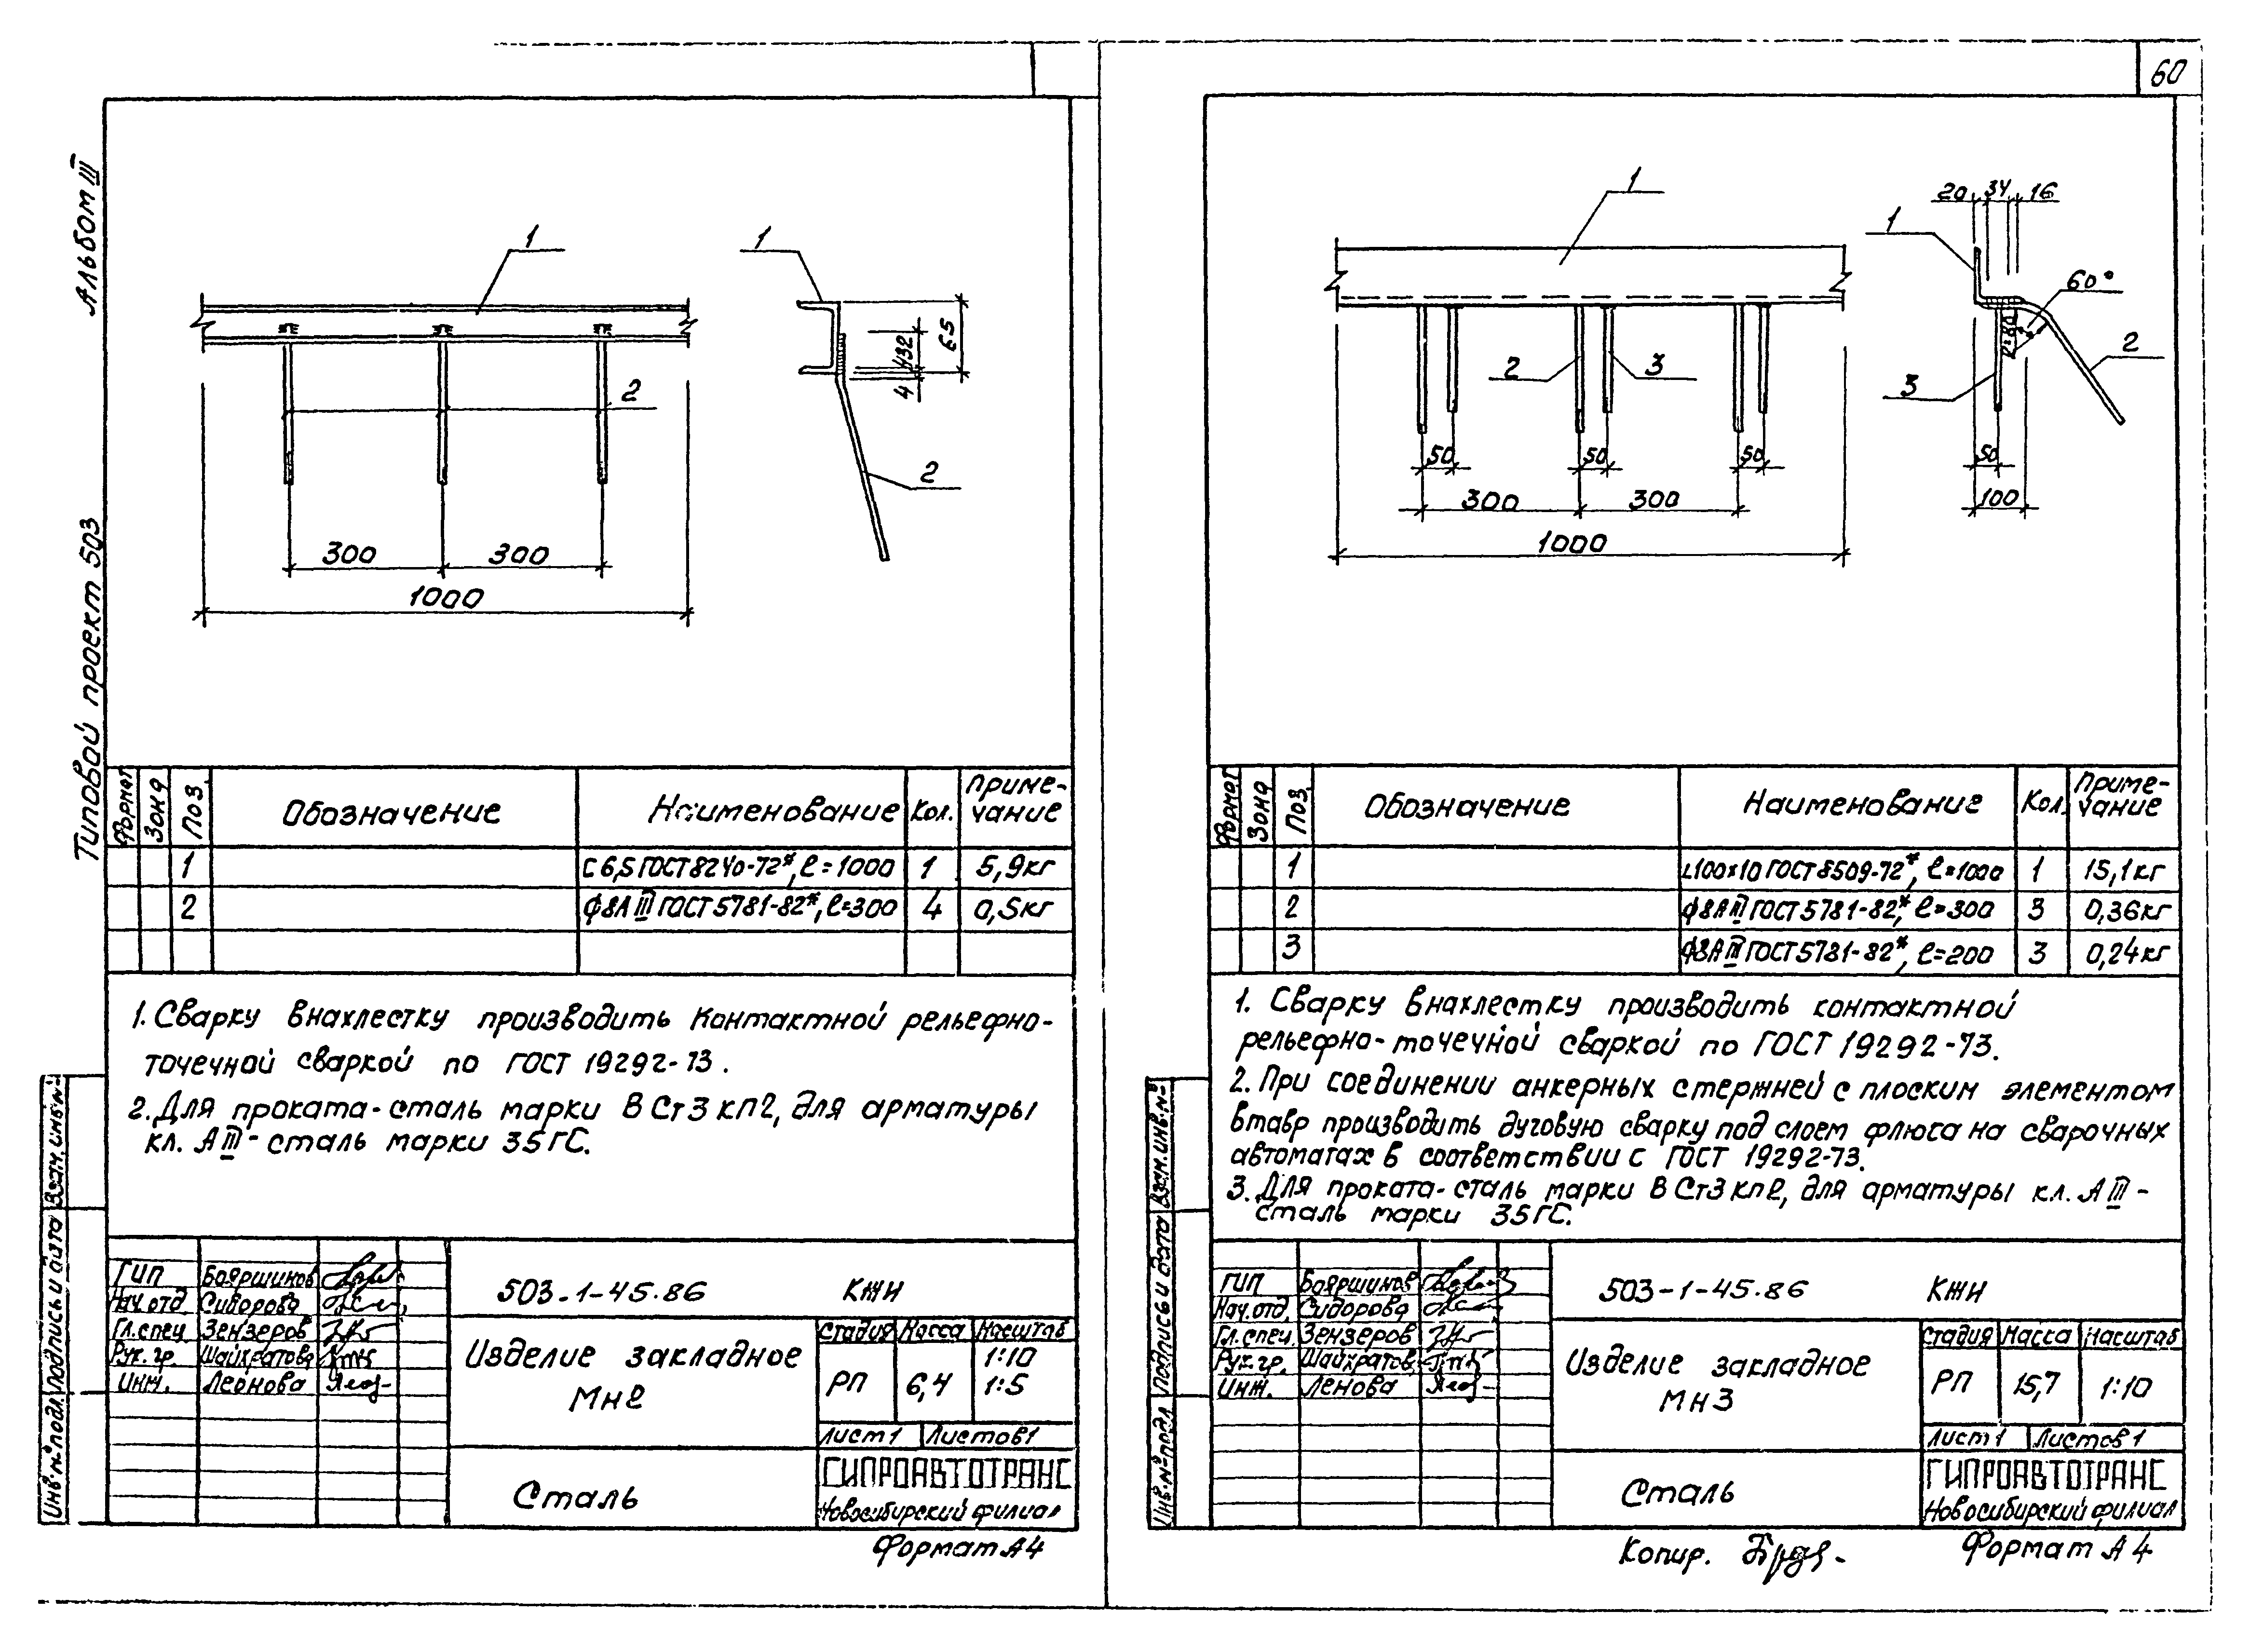 60
Альбом III
Типовой проект 503
1
1
65
432
4
2
2
300
300
1000
Формат
Зона
Поз.
Обозначение
Наименование
Кол.
Приме-
чание
1
С 6,5 ГОСТ 8240-72*, ℓ=1000
1
5,9кг
2
ф8АIII ГОСТ 5781-82*, ℓ=300
4
0,5кг
1. Сварку внахлестку производить контактной рельефно-
точечной сваркой по ГОСТ 19292-73.
2. Для проката-сталь марки ВСт3кп2, для арматуры
кл. АIII-сталь марки 35ГС.
Инв.№подл.
Подпись и дата
Взам.инв.№
ГИП Бояршинов
Нач.отд. Сидорова
Гл.спец. Зензеров
Рук.гр. Шайхратова
Инж. Леонова
503-1-45.86 КЖИ
Изделие закладное
Мн2
Стадия Масса Масштаб
РП 6,4 1:10
1:5
Лист1 Листов1
Сталь
ГИПРОАВТОТРАНС
Новосибирский филиал
Формат А4
1
20 34 16
1
60°
R=80
2
3
2
3
50 50 50
300 300
1000
50
100
Формат
Зона
Поз.
Обозначение
Наименование
Кол.
Приме-
чание
1
∟100х10 ГОСТ 8509-72*, ℓ=1000
1
15,1кг
2
ф8АIII ГОСТ 5781-82*, ℓ=300
3
0,36кг
3
ф8АIII ГОСТ 5781-82*, ℓ=200
3
0,24кг
1. Сварку внахлестку производить контактной
рельефно-точечной сваркой по ГОСТ 19292-73.
2. При соединении анкерных стержней с плоским элементом
втавр производить дуговую сварку под слоем флюса на сварочных
автоматах в соответствии с ГОСТ 19292-73.
3. Для проката-сталь марки ВСт3кп2, для арматуры кл. АIII-
сталь марки 35ГС.
Инв.№подл
Подпись и дата
Взам.инв.№
ГИП Бояршинов
Нач.отд. Сидорова
Гл.спец. Зензеров
Рук.гр. Шайхратов
Инж. Ленова
503-1-45.86 КЖИ
Изделие закладное
Мн3
Стадия Масса Масштаб
РП 15,7 1:10
Лист1 Листов1
Сталь
ГИПРОАВТОТРАНС
Новосибирский филиал
Копир.
Формат А4